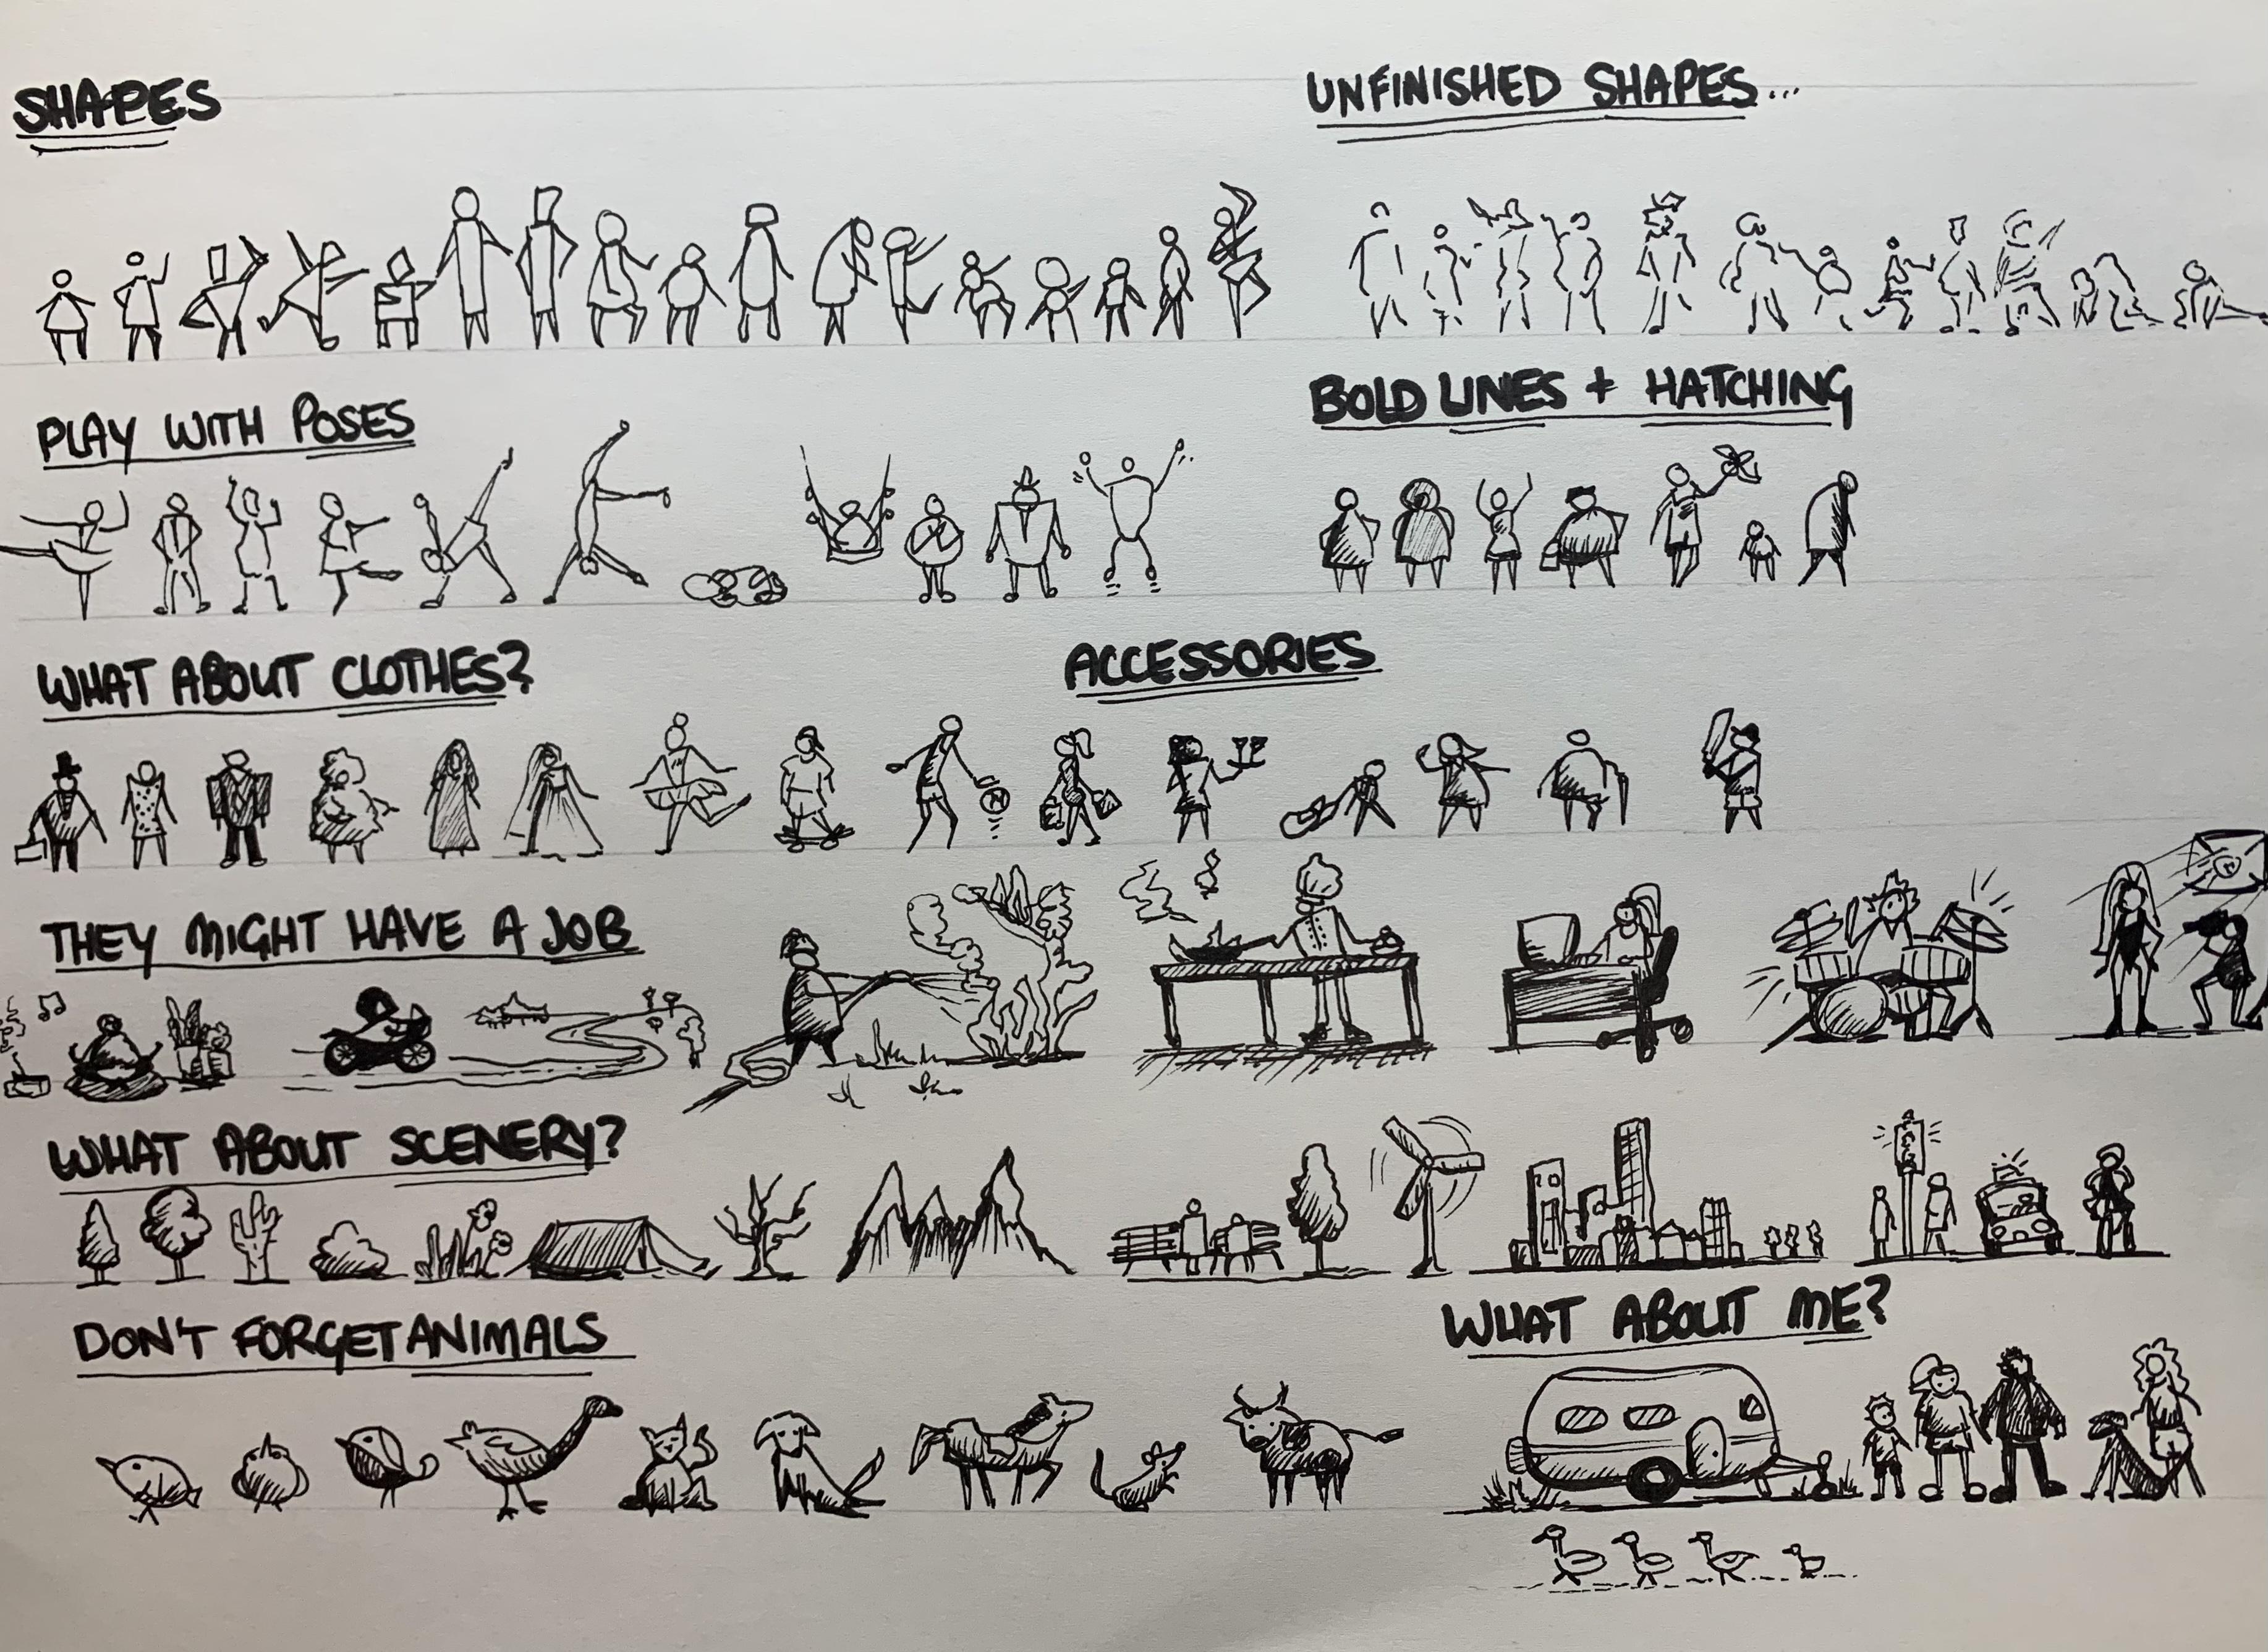 SHAPES
UNFINISHED SHAPES...
PLAY WITH POSES
BOLD LINES + HATCHING
WHAT ABOUT CLOTHES?
ACCESSORIES
THEY MIGHT HAVE A JOB
WHAT ABOUT SCENERY?
DON'T FORGET ANIMALS
WHAT ABOUT ME?